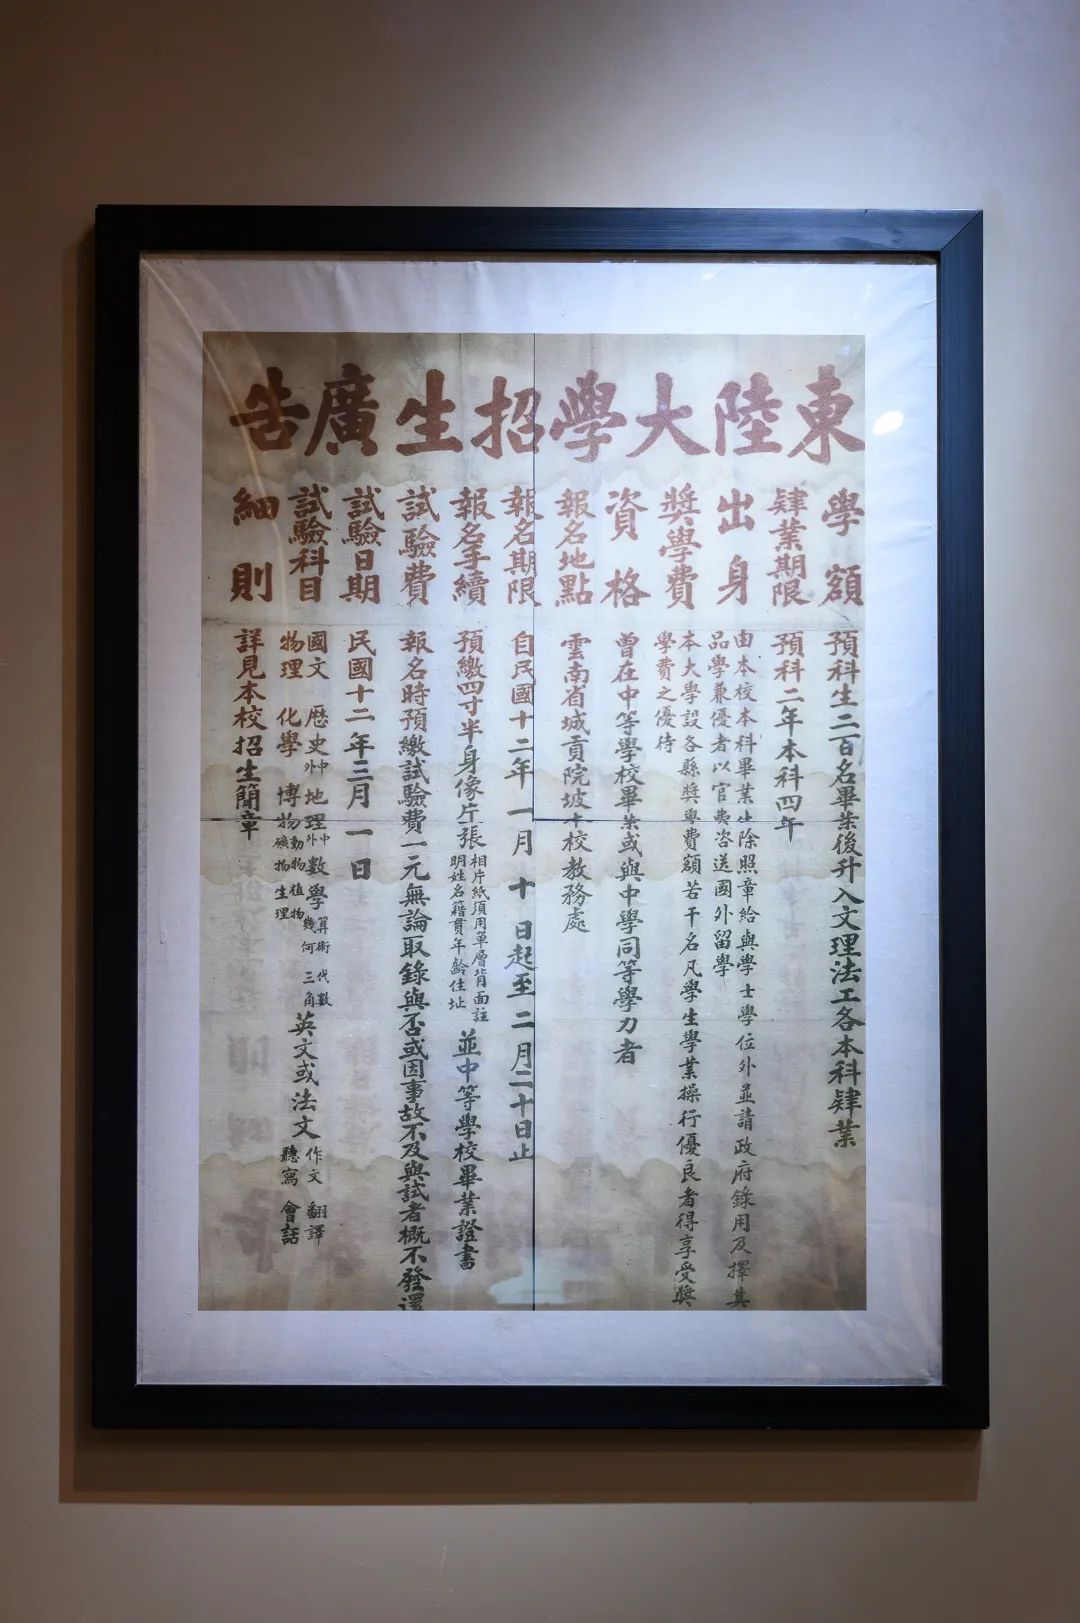 東陸大學招生廣告
學額
預科生二百名畢業後升入文理法工各本科肄業
肄業期限
預科二年本科四年
出身
由本校本科畢業生除照章給與學士學位外並請政府錄用及擇其
品學兼優者以官費咨送國外留學
獎學費
本大學設各縣獎學費額若干名凡學生學業操行優良者得享受獎
學費之優待
資格
曾在中等學校畢業或與中學同等學力者
報名地點
雲南省城貢院坡本校教務處
報名期限
自民國十二年一月十日起至二月二十日止
報名手續
預繳四寸半身像片一張
相片紙須用單層背面註
明姓名籍貫年齡住址
並中等學校畢業證書
試驗費
報名時預繳試驗費一元無論取錄與否或因事故不及與試者概不發還
試驗日期
民國十二年三月一日
試驗科目
國文 歷史中外 地理中外 數學算術 代數 幾何 三角 英文或法文作文 翻譯 聽寫 會話
物理 化學 博物動物 植物 礦物 生理
細則
詳見本校招生簡章